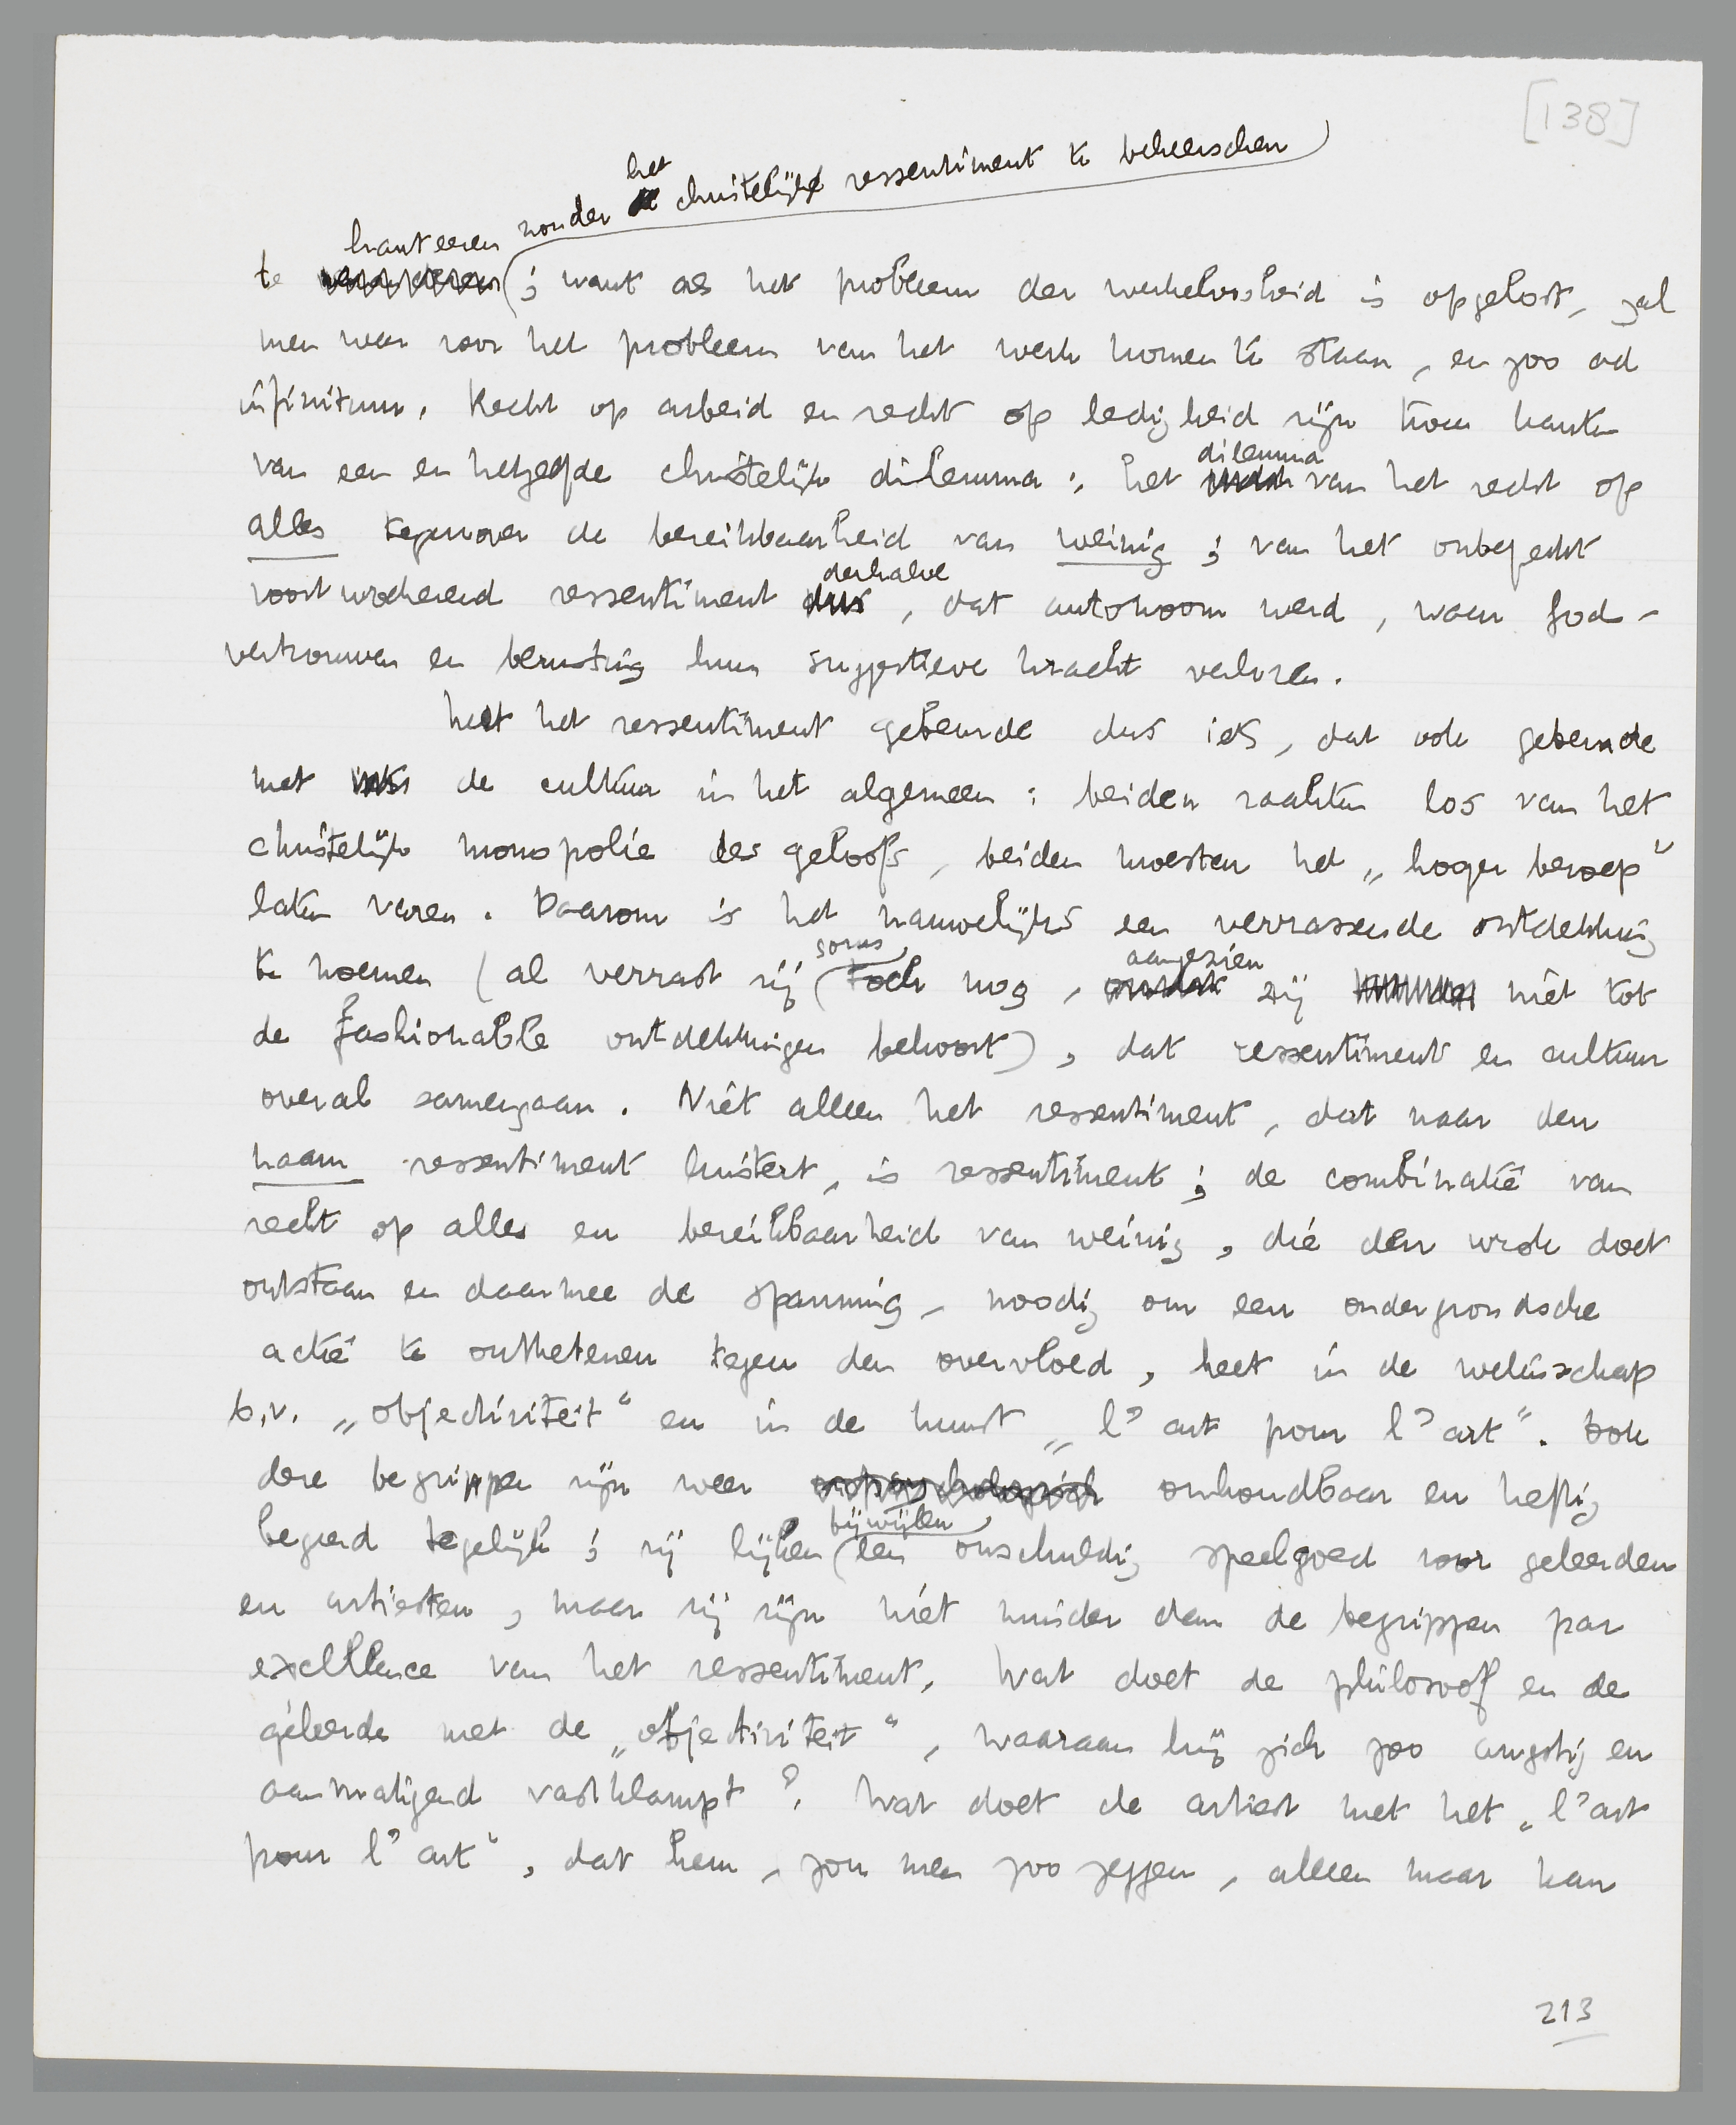 [138]
zonder het christelijk ressentiment te beheerschen
hanteeren
te ; want als het probleem der werkeloosheid is opgelost, zal
men weer voor het probleem van het werk komen te staan, en zoo ad
infinitum. Recht op arbeid en recht op ledigheid zijn twee kanten
van een en hetzelfde christelijke dilemma: het dilemma van het recht op
alles tegenover de bereikbaarheid van weinig; van het onbeperkt
voortwoekerend ressentiment derhalve, dat autonoom werd, waar Gods-
vertrouwen en berusting hun suggestieve kracht verloren.
Met het ressentiment gebeurde dus iets, dat ook gebeurde
met de cultuur in het algemeen: beiden raakten los van het
christelijk monopolie des geloofs, beiden moesten het „hooger beroep"
laten varen. Daarom is het nauwelijks een verrassende ontdekking
te noemen (al verrast zij soms toch nog, aangezien zij niet tot
de fashionable ontdekkingen behoort), dat ressentiment en cultuur
overal samengaan. Niet alleen het ressentiment, dat naar den
naam ressentiment luistert, is ressentiment; de combinatie van
recht op alles en bereikbaarheid van weinig, die den wrok doet
ontstaan en daarmee de spanning, noodig om een ondergrondsche
actie te ontketenen tegen den overvloed, heet in de wetenschap
b.v. „objectiviteit" en in de kunst „l'art pour l'art". Ook
deze begrippen zijn weer onhoudbaar en heftig
begeerd tegelijk; zij lijken bijwijlen een onschuldig speelgoed voor geleerden
en artiesten, maar zij zijn niet minder dan de begrippen par
excellence van het ressentiment. Wat doet de philosoof en de
geleerde met de „objectiviteit", waaraan hij zich zoo angstig en
aanmatigend vastklampt? Wat doet de artiest met het „l'art
pour l'art", dat hem, zou men zoo zeggen, alleen maar kan
213